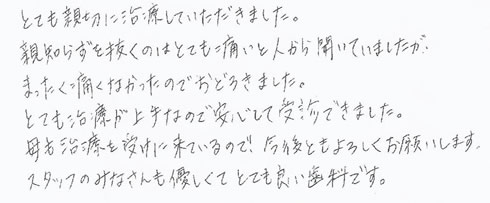 とても親切に治療していただきました。
親知らずを抜くのはとても痛いと人から聞いていましたが、
まったく痛くなかったのでおどろきました。
とても治療が上手なので安心して受診できました。
母も治療を受けに来ているので今後ともよろしくお願いします。
スタッフのみなさんも優しくてとても良い歯科です。